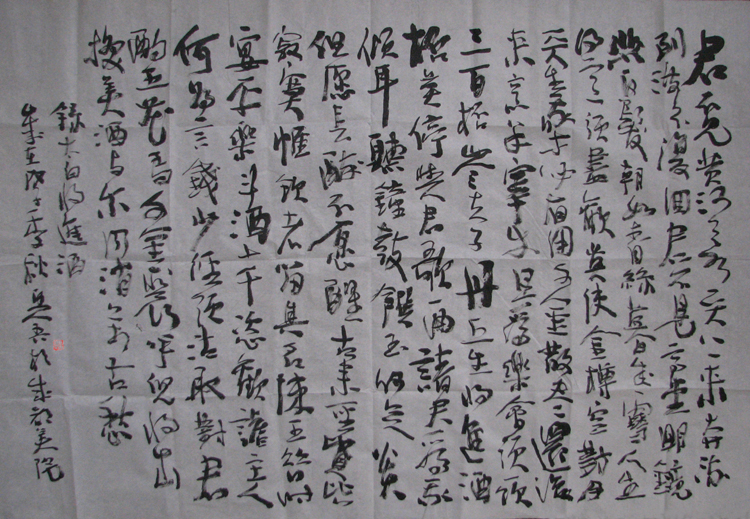 君不見黃河之水天上來奔流
到海不復回君不見高堂明鏡
悲白髮朝如青絲暮成雪人生
得意須盡歡莫使金樽空對月
天生我材必有用千金散盡還復
來烹羊宰牛且為樂會須飲
三百杯岑夫子丹丘生將進酒
杯莫停與君歌一曲請君為我
傾耳聽鐘鼓饌玉何足貴
但願長醉不願醒古來聖賢皆
寂寞惟飲者留其名陳王昔時
宴平樂斗酒十千恣歡謔主人
何為言錢少徑須沽取對君
酌五花馬千金裘呼兒將出
換美酒與爾同消萬古愁
錄太白將進酒
歲在戊子季秋於成都美院